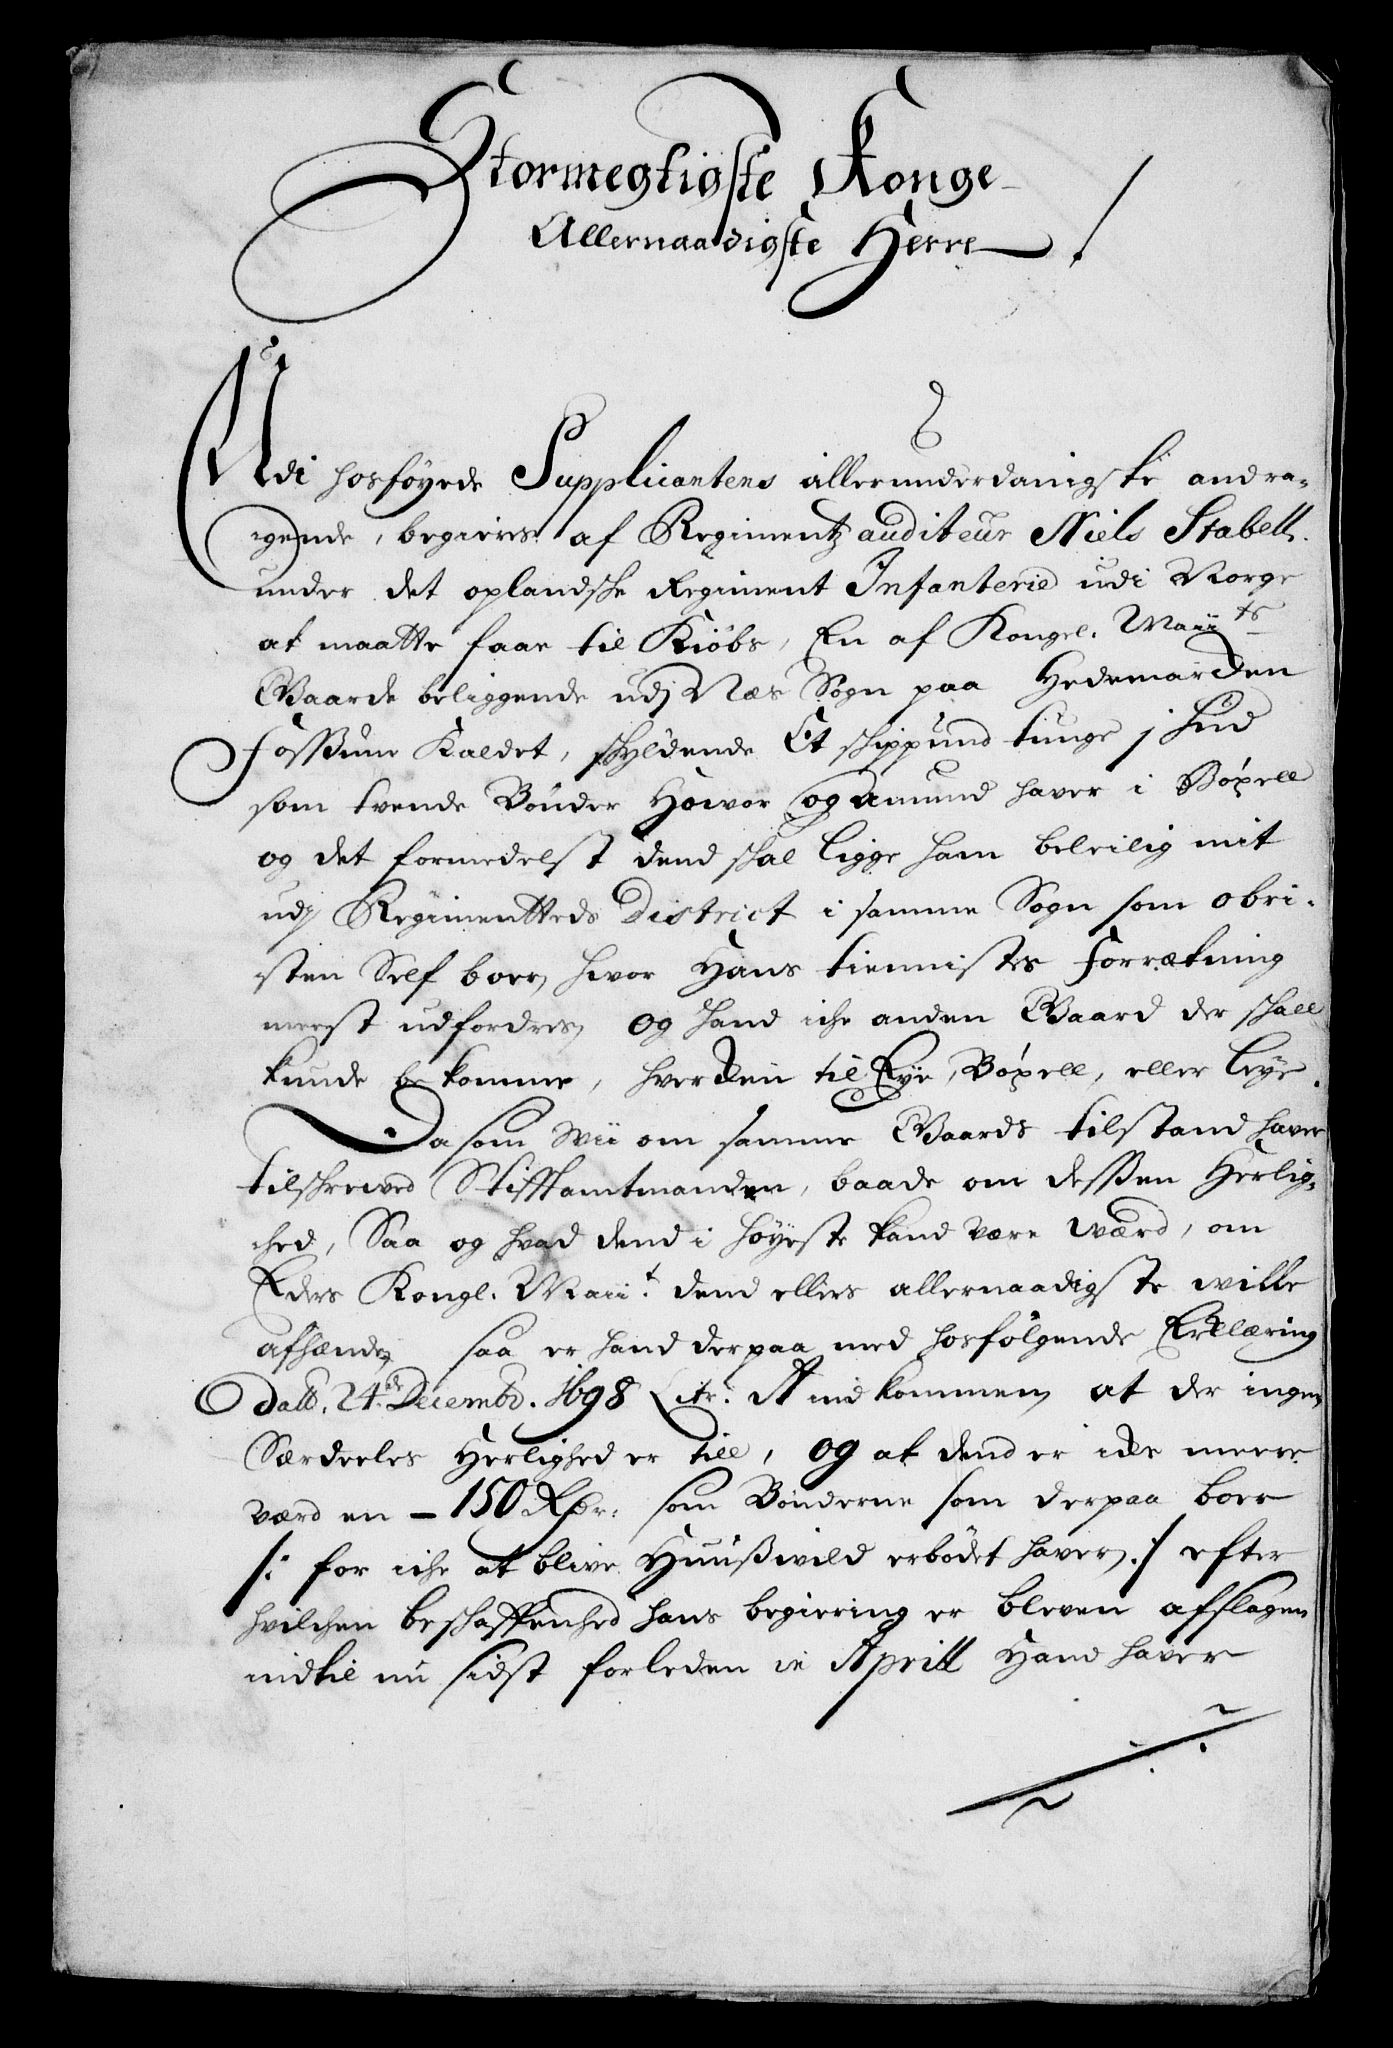 Stormegtigste Konge
Allernaadigste Herre /
Udi hosföyede Supplicantens allerunderdanigste andra-
gende, begieres af Regimentz auditeur Niels Stabell.
under det oplandske Regiment Infanterie udi Norge
at maatte faae til Kiöbs, En af Kongel. Maiits
Gaarde beliggende udj Næs Sogn paa Hedemarcken
Fossum Kaldet, skyldende Et skippund tunge j hud
som tvende Bönder Howor og Amund haver i Böxell
og det formedelst dend skal ligge ham beleilig mit
udj Regimentteds District i samme Sogn som obri-
sten Self boer, hvor Hans tiennistes Forrætning
meest udfordres, og hand iche anden Gaard der skall
kunde bekomme, hverchen til Eye, Böxell, eller Leye.
Da som Wii om samme Gaards tilstand haver
tilskrewed Stifftamtmanden, baade om dessen Herlig-
hed, Saa og hvad dend i höyeste kand være værd, om
Eders Kongl. Maiit. dend ellers allernaadigste wille
afhænde, saa er hand derpaa med hosfölgende Erklæring
Datt. 24de Decembr. 1698 Litr. A indkommen, at der ingen
Særdeeles Herlighed er till, og at dend er icke meere
værd en – 150 Rdr. som Bönderne som derpaa boer
/: for iche at blive Huusswild erbödet haver :/ efter
hvilchen beskaffenhed hans begiering er bleven afslagen
indtil nu sidst forleden in Aprill Hand haver